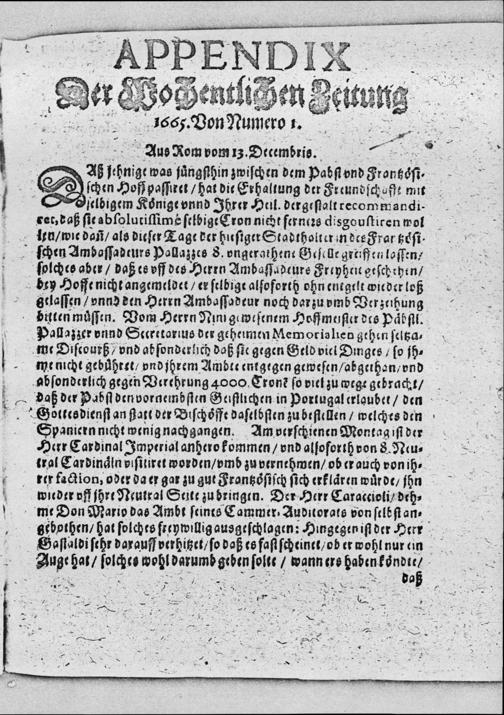 APPENDIX
Der Wochentlichen Zeitung
1665. Von Numero 1.
Aus Rom vom 13. Decembris.
DAß jehnige was jüngsthin zwischen dem Pabst vnd Frantzösi-
schen Hoff passiret / hat die Erhaltung der Freundschafft mit
selbigem Könige vnnd Jhrer Heil. der gestalt recommandi-
ret, daß sie absolutissimè selbige Cron nicht ferners disgoustiren wol
len / wie dañ / als dieser Tage der hiesiger Stadthalter in des Frantzösi-
schen Ambassadeurs Pallazzes 8. vngerathene Geselle greiffen lassen /
solches aber / daß es vff des Herrn Ambassadeurs Freyheit geschehen /
bey Hoffe nicht angemeldet / er selbige alsoforth ohn entgelt wieder loß
gelassen / vnnd den Herrn Ambassadeur noch darzu vmb Verzeihung
bitten müssen. Vom Herrn Nini gewesenem Hoffmeister des Päbstl.
Pallazzer vnnd Secretarius der geheimen Memorialien gehen seltza-
me Discourß / vnd absonderlich daß sie gegen Geld viel Dinges / so jh-
me nicht gebühret / vnd jhrem Ambte entgegen gewesen / abgethan / vnd
absonderlich gegen Verehrung 4000. Cronē so viel zu wege gebracht /
daß der Pabst den vornembsten Geistlichen in Portugal erlaubet / den
Gottesdienst an statt der Bischöffe daselbsten zu bestellen / welches den
Spaniern nicht wenig nachgangen. Am verschienen Montag ist der
Herr Cardinal Imperial anhero kommen / vnd alsoforth von 8. Neu-
tral Cardinäln visitiret worden / vmb zu vernehmen / ob er auch von ih-
rer faction, oder da er gar zu gut Frantzösisch sich erklären würde / jhn
wieder vff jhre Neutral Seite zu bringen. Der Herr Caraccioli / deh-
me Don Mario das Ambt seines Cammer-Auditorats von selbst an-
gebothen / hat solches freywillig ausgeschlagen: Hingegen ist der Herr
Gastaldi sehr darauff verhitzet / so daß es fast scheinet / ob er wohl nur ein
Auge hat / solches wohl darumb geben solte / wann ers haben köndte /
daß